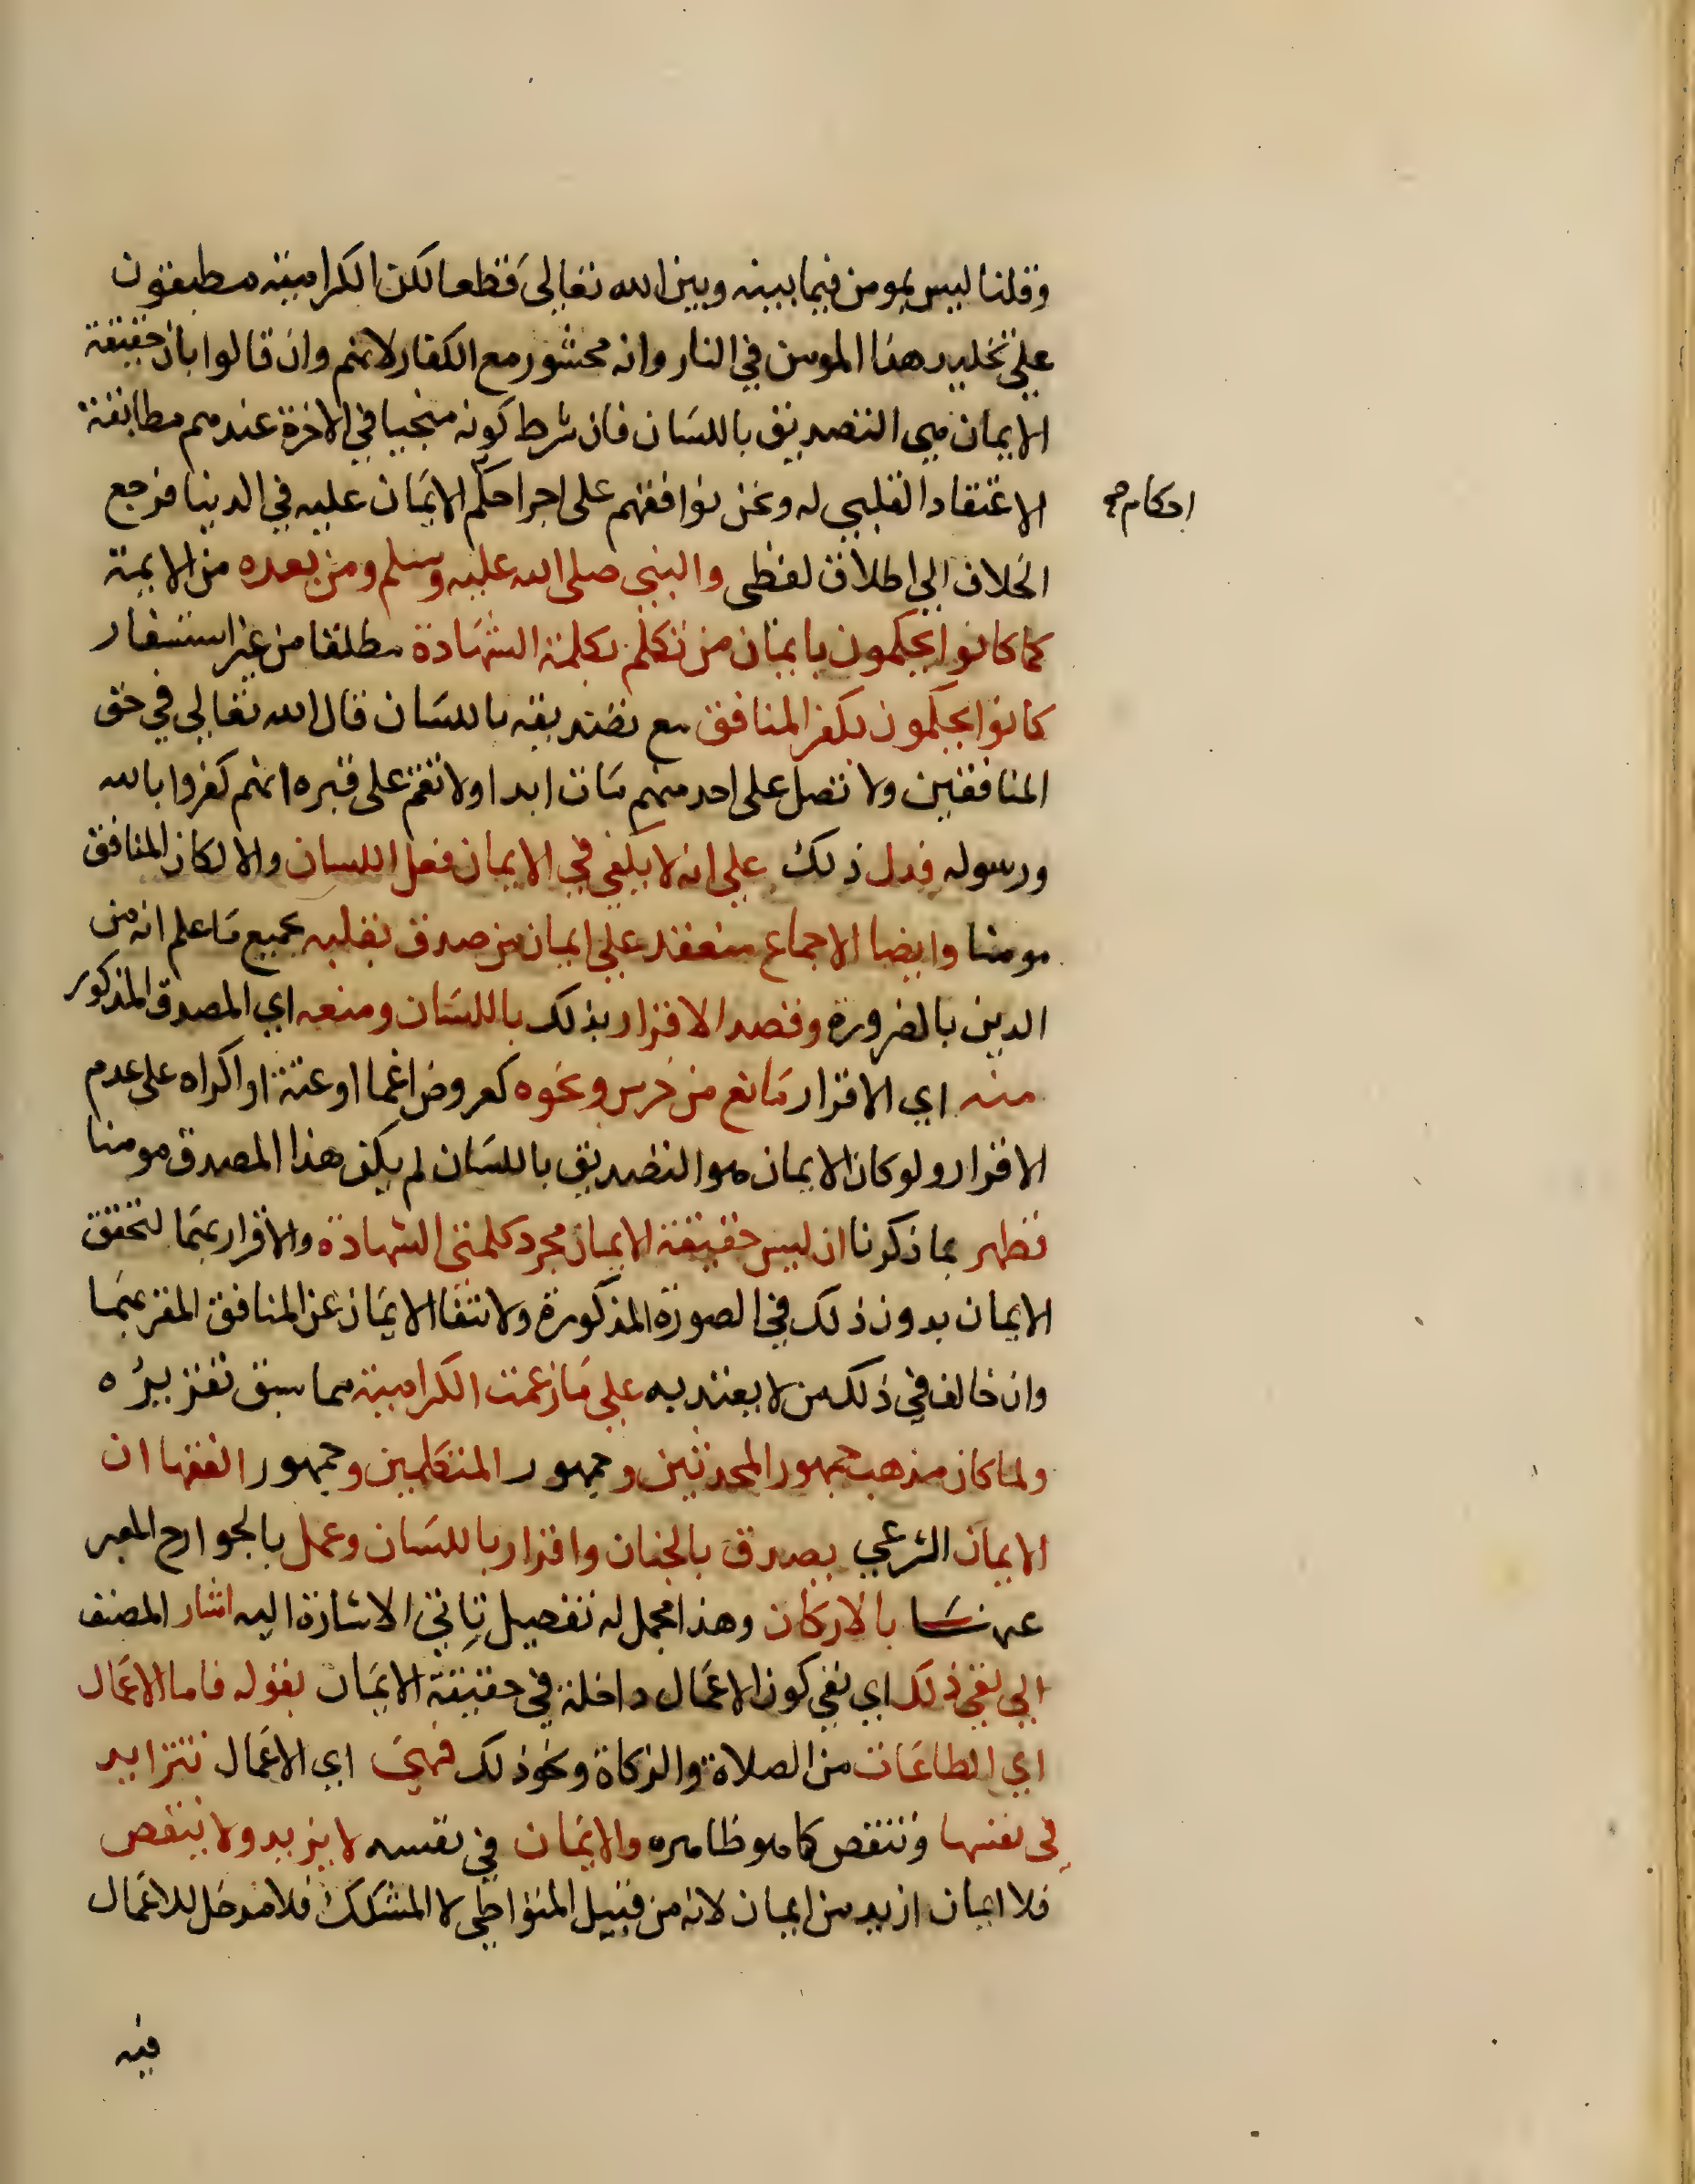 وقلنا ليس بمومن فيما بينه وبين الله تعالى قطعا لكن الكراميه مطبقون
على تخليد هذا المومن في النار وانه محشور مع الكفار لانهم وان قالوا بان حقيقة
الايمان هي التصديق باللسان فان شرط كونه منجيا في الاخرة عندهم مطابقة
الاعتقاد القلبي له ونحن نوافقهم على اجرا حكم الايمان عليه في الدنيا فرجع
احكام صح
الخلاف الي اطلاق لفظي والنبي صلى الله عليه وسلم ومن بعده من الايمة
كما كانوا يحكمون بايمان من تكلم بكلمة الشهادة مطلقا من غير استفسار
كانوا يحكمون بكفر المنافق مع تصديقه باللسان قال الله تعالي في حق
المنافقين ولا تصل على احد منهم مات ابدا ولا تقم على قبره انهم كفروا بالله
ورسوله فدل ذلك علي انه لا يكفي في الايمان فعل اللسان والا لكان المنافق
مومنا وايضا الاجماع منعقد علي ايمان من صدق بقلبه بجميع ما علم انه من
الدين بالضرورة وقصد الاقرار بذلك باللسان ومنعه اي المصدق المذكور
منه اي الاقرار مانع من خرس ونحوه كعروض اغما او عته او اكراه على عدم
الاقرار ولو كان الايمان هو التصديق باللسان لم يكن هذا المصدق مومنا
فظهر بما ذكرنا ان ليس حقيقة الايمان مجرد كلمتي الشهادة والاقرار بهما لتحقق
الايمان بدون ذلك في الصورة المذكورة ولانتفا الايمان عن المنافق المقر بهما
وان خالف في ذلك من لا يعتد به علي ما زعمت الكرامية مما سبق تقريره
ولما كان مذهب جمهور المحدثين وجمهور المتكلمين وجمهور الفقها ان
الايمان الشرعي تصدق بالجنان واقرار باللسان وعمل بالجوارح المعبر
عنها بالاركان وهذا مجمل له تفصيل تاتي الاشارة اليه اشار المصنف
الي نفي ذلك اي نفي كون الاعمال داخلة في حقيقة الايمان بقوله فاما الاعمال
اي الطاعات من الصلاة والزكاة ونحو ذلك فهي اي الاعمال تتزايد
في نفسها وتنقص كما هو ظاهره والايمان في نفسه لا يزيد ولا ينقص
فلا ايمان ازيد من ايمان لانه من قبيل المتواطي لا المشكك فلا مدخل للاعمال
فيه